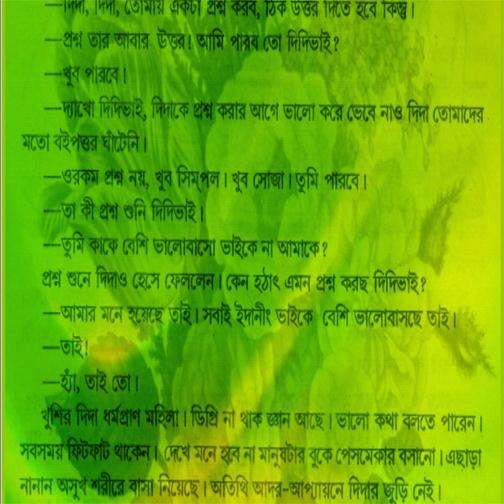 —দিদা, দিদা, তোমায় একটা প্রশ্ন করব, ঠিক উত্তর দিতে হবে কিন্তু।
—প্রশ্ন তার আবার উত্তর! আমি পারব তো দিদিভাই?
—খুব পারবে।
—দ্যাখো দিদিভাই, দিদাকে প্রশ্ন করার আগে ভালো করে ভেবে নাও দিদা তোমাদের
মতো বইপত্তর ঘাঁটেনি।
—ওরকম প্রশ্ন নয়, খুব সিম্পল। খুব সোজা। তুমি পারবে।
—তা কী প্রশ্ন শুনি দিদিভাই।
—তুমি কাকে বেশি ভালোবাসো ভাইকে না আমাকে?
প্রশ্ন শুনে দিদাও হেসে ফেললেন। কেন হঠাৎ এমন প্রশ্ন করছ দিদিভাই?
—আমার মনে হয়েছে তাই। সবাই ইদানীং ভাইকে বেশি ভালোবাসছে তাই।
—তাই!
—হ্যাঁ, তাই তো।
খুশির দিদা ধর্মপ্রাণ মহিলা। ডিগ্রি না থাক জ্ঞান আছে। ভালো কথা বলতে পারেন।
সবসময় ফিটফাট থাকেন। দেখে মনে হবে না মানুষটার বুকে পেসমেকার বসানো। এছাড়া
নানান অসুখ শরীরে বাসা নিয়েছে। অতিথি আদর-আপ্যায়নে দিদার জুড়ি নেই।